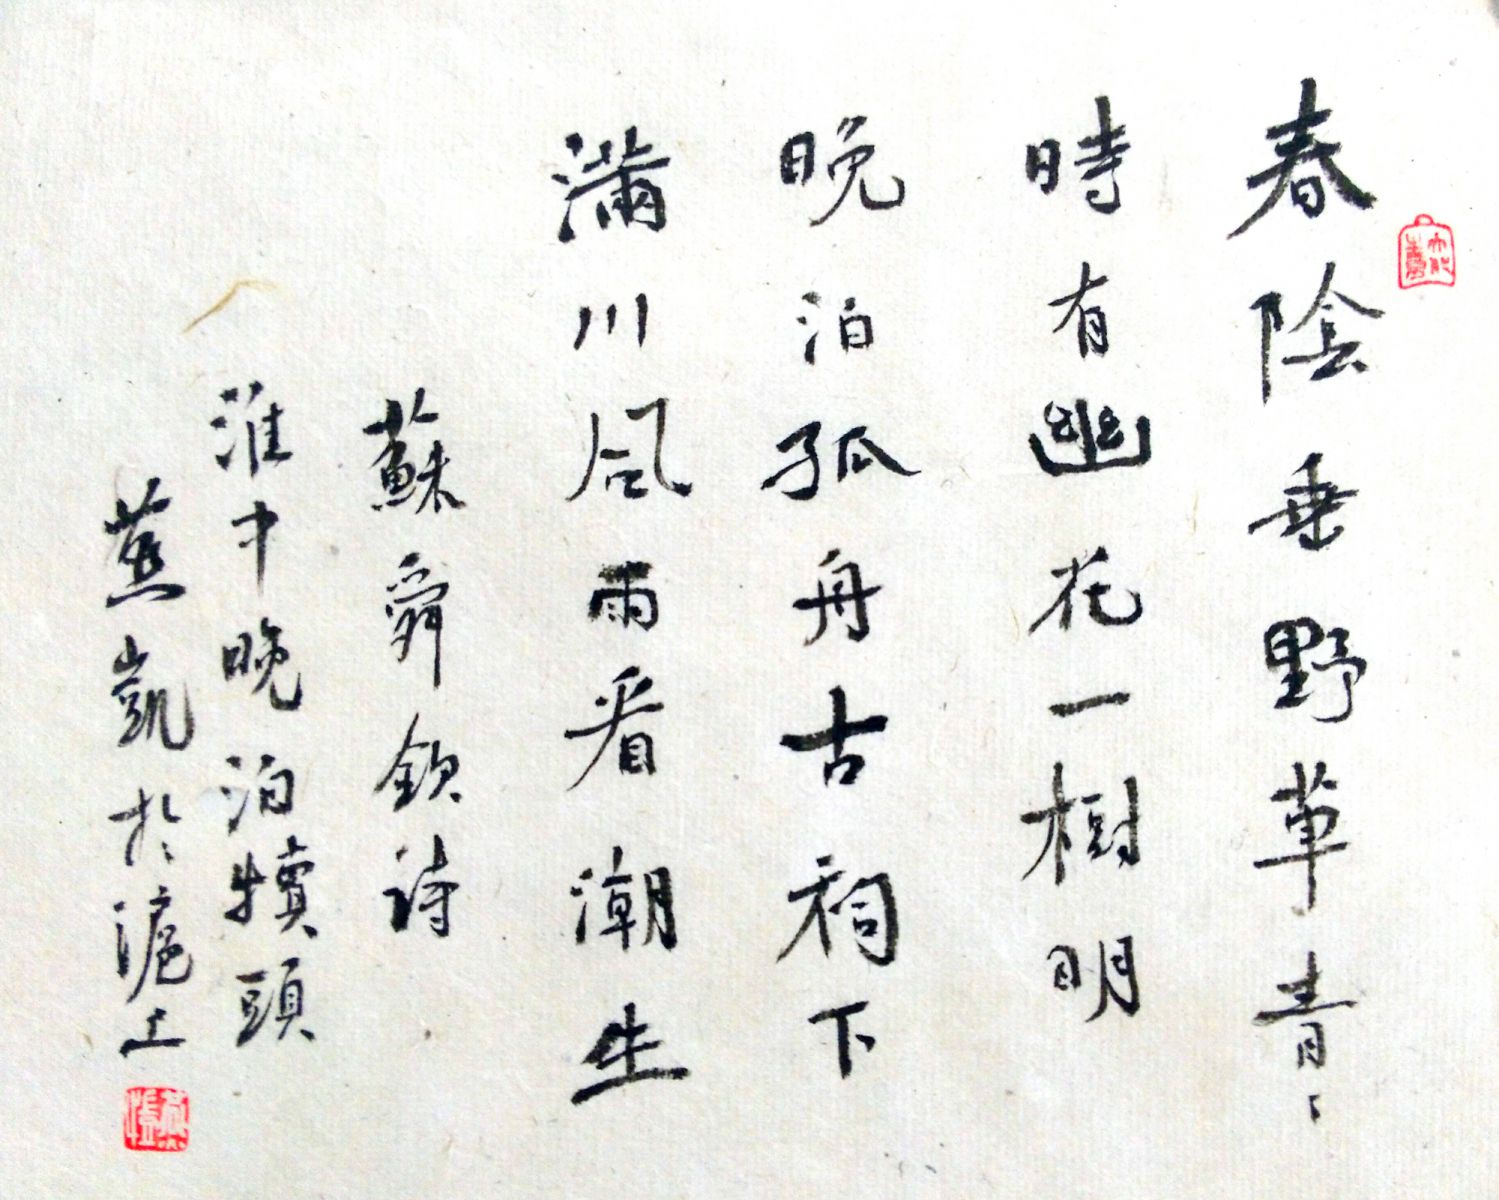 春陰垂野草青〻
時有幽花一樹明
晚泊孤舟古祠下
滿川風雨看潮生
蘇舜欽詩
淮中晚泊犢頭
蕉凱於滬上